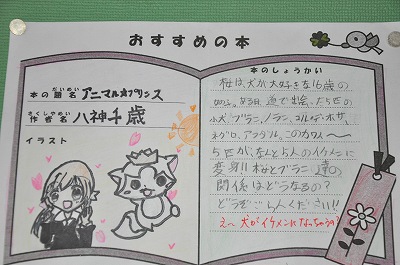 おすすめの本
本の題名 アニマルカプリンス
さくしゃめい
作者名 八神千歳
イラスト
本のしょうかい
桜は、犬が大好きな16歳の
女の子。ある日、道で出会った5匹の
小犬、ブラン、ノラン、コルザ、ホサ、
ネグロ、アラダル、このカワイ〜
5匹が、なんと5人のイケメンに
変身!!
関係はどうなるの?
どうぞごらんください!!
え〜犬がイケメンになっちゃうの?